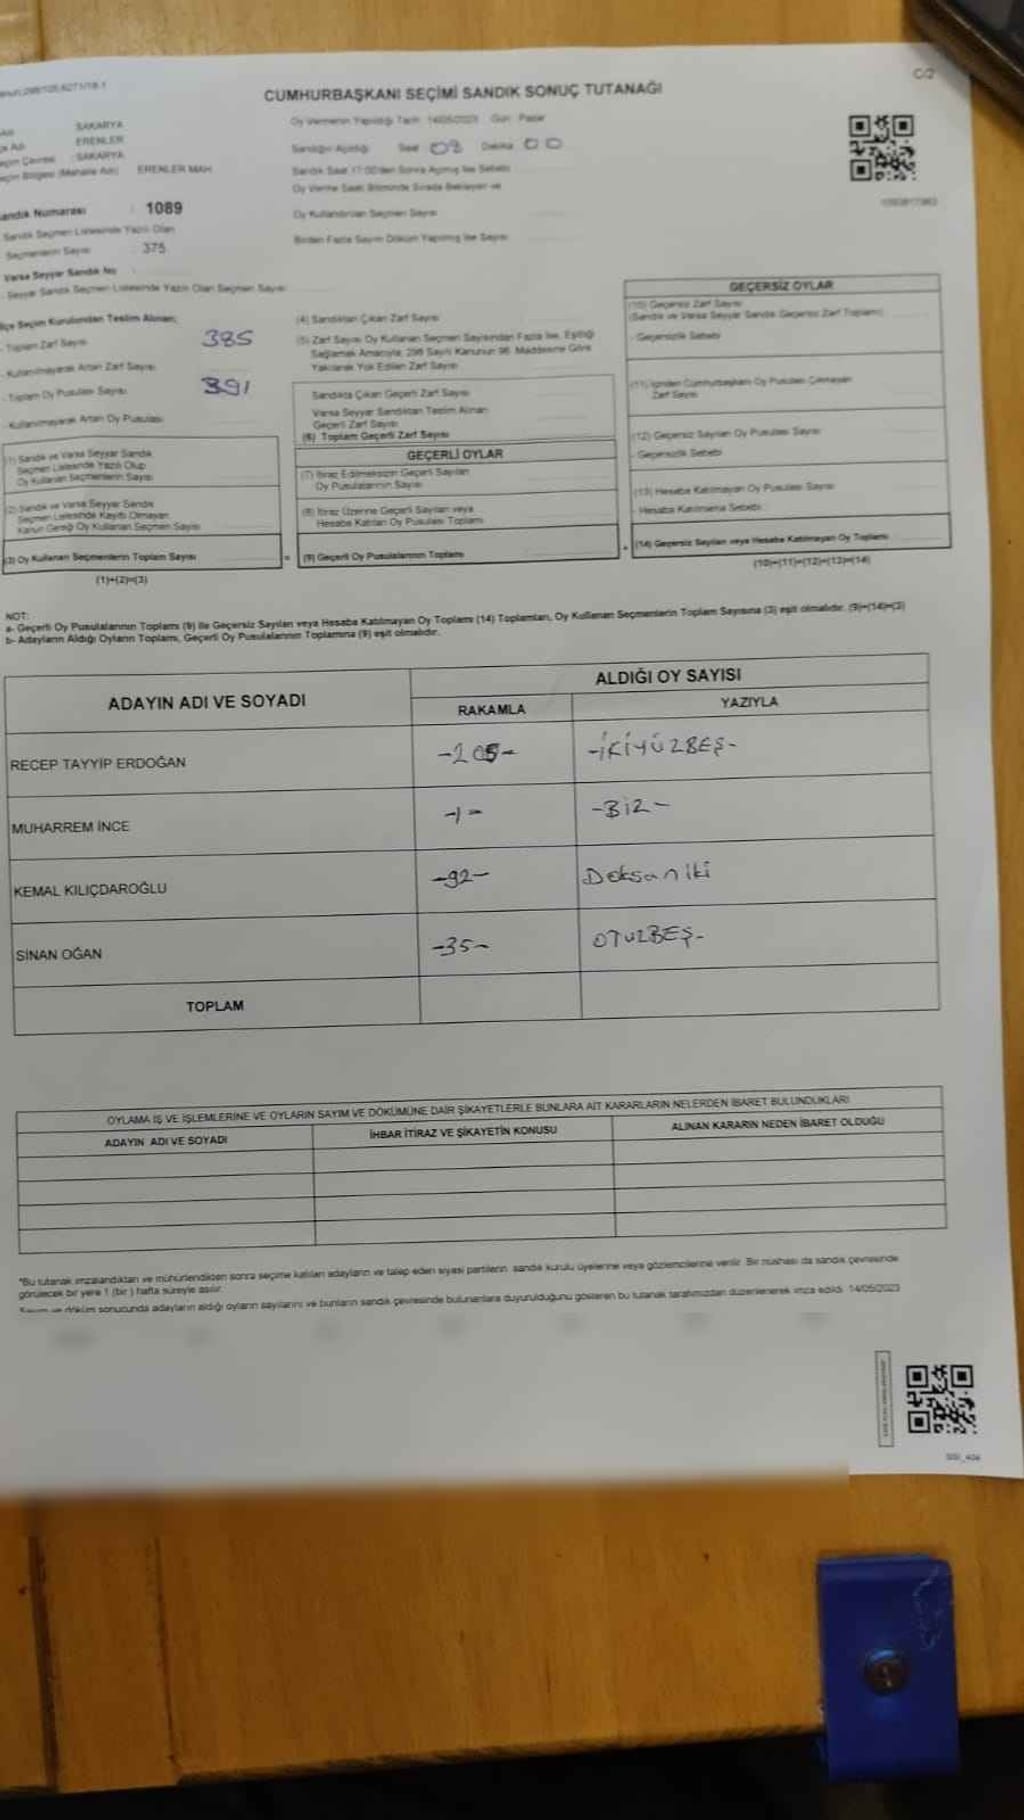 CUMHURBAŞKANI SEÇİMİ SANDIK SONUÇ TUTANAĞI
C/2
SAKARYA
ERENLER
SAKARYA
ERENLER MAH
Sandık Numarası : 1089
Sandık Seçmen Listesinde Yazılı Olan
Seçmenlerin Sayısı 375
Varsa Seyyar Sandık No
Seyyar Sandık Seçmen Listesinde Yazılı Olan Seçmen Sayısı
Oy Vermenin Yapıldığı Tarih 14/05/2023 Gün: Pazar
Sandığın Açıldığı Saat 08 Dakika 00
Sandık Saat 17:00'den Sonra Açılmış İse Sebebi
Oy Verme Saati Bitiminde Sırada Bekleyen ve
Oy Kullandırılan Seçmen Sayısı
Birden Fazla Sayım Döküm Yapılmış İse Sayısı
İlçe Seçim Kurulundan Teslim Alınan;
- Toplam Zarf Sayısı 385
- Kullanılmayarak Artan Zarf Sayısı
- Toplam Oy Pusulası Sayısı 391
- Kullanılmayarak Artan Oy Pusulası
(1) Sandık ve Varsa Seyyar Sandık
Seçmen Listesinde Yazılı Olup
Oy Kullanan Seçmenlerin Sayısı
(2) Sandık ve Varsa Seyyar Sandık
Seçmen Listesinde Kayıtlı Olmayan
Kanun Gereği Oy Kullanan Seçmen Sayısı
(3) Oy Kullanan Seçmenlerin Toplam Sayısı
(1)+(2)=(3)
(4) Sandıktan Çıkan Zarf Sayısı
(5) Zarf Sayısı Oy Kullanan Seçmen Sayısından Fazla İse, Eşitliği
Sağlamak Amacıyla, 298 Sayılı Kanunun 98. Maddesine Göre
Yakılarak Yok Edilen Zarf Sayısı
Sandıkta Çıkan Geçerli Zarf Sayısı
Varsa Seyyar Sandıktan Teslim Alınan
Geçerli Zarf Sayısı
(6) Toplam Geçerli Zarf Sayısı
GEÇERLİ OYLAR
(7) İtiraz Edilmeksizin Geçerli Sayılan
Oy Pusulalarının Sayısı
(8) İtiraz Üzerine Geçerli Sayılan veya
Hesaba Katılan Oy Pusulası Toplamı
= (9) Geçerli Oy Pusulalarının Toplamı
GEÇERSİZ OYLAR
(10) Geçersiz Zarf Sayısı
(Sandık ve Varsa Seyyar Sandık Geçersiz Zarf Toplamı)
- Geçersizlik Sebebi
(11) İçinden Cumhurbaşkanı Oy Pusulası Çıkmayan
Zarf Sayısı
(12) Geçersiz Sayılan Oy Pusulası Sayısı
- Geçersizlik Sebebi
(13) Hesaba Katılmayan Oy Pusulası Sayısı
- Hesaba Katılmama Sebebi
+ (14) Geçersiz Sayılan veya Hesaba Katılmayan Oy Toplamı
(10)+(11)+(12)+(13)=(14)
NOT:
a- Geçerli Oy Pusulalarının Toplamı (9) ile Geçersiz Sayılan veya Hesaba Katılmayan Oy Toplamı (14) Toplamları, Oy Kullanan Seçmenlerin Toplam Sayısına (3) eşit olmalıdır. (9)+(14)=(3)
b- Adayların Aldığı Oyların Toplamı, Geçerli Oy Pusulalarının Toplamına (9) eşit olmalıdır.
ADAYIN ADI VE SOYADI
ALDIĞI OY SAYISI
RAKAMLA
YAZIYLA
RECEP TAYYİP ERDOĞAN -205- -İKİYÜZBEŞ-
MUHARREM İNCE -1- -BİR-
KEMAL KILIÇDAROĞLU -92- Doksaniki
SİNAN OĞAN -35- OTUZBEŞ-
TOPLAM
OYLAMA İŞ VE İŞLEMLERİNE VE OYLARIN SAYIM VE DÖKÜMÜNE DAİR ŞİKAYETLERLE BUNLARA AİT KARARLARIN NELERDEN İBARET BULUNDUKLARI
ADAYIN ADI VE SOYADI
İHBAR İTİRAZ VE ŞİKAYETİN KONUSU
ALINAN KARARIN NEDEN İBARET OLDUĞU
*Bu tutanak imzalandıktan ve mühürlendikten sonra seçime katılan adayların ve talep eden siyasi partilerin sandık kurulu üyelerine veya gözlemcilerine verilir. Bir nüshası da sandık çevresinde
görülecek bir yere 1 (bir) hafta süreyle asılır.
Sayım ve döküm sonucunda adayların aldığı oyların sayılarını ve bunların sandık çevresinde bulunanlara duyurulduğunu gösteren bu tutanak tarafımızdan düzenlenerek imza edildi. 14/05/2023